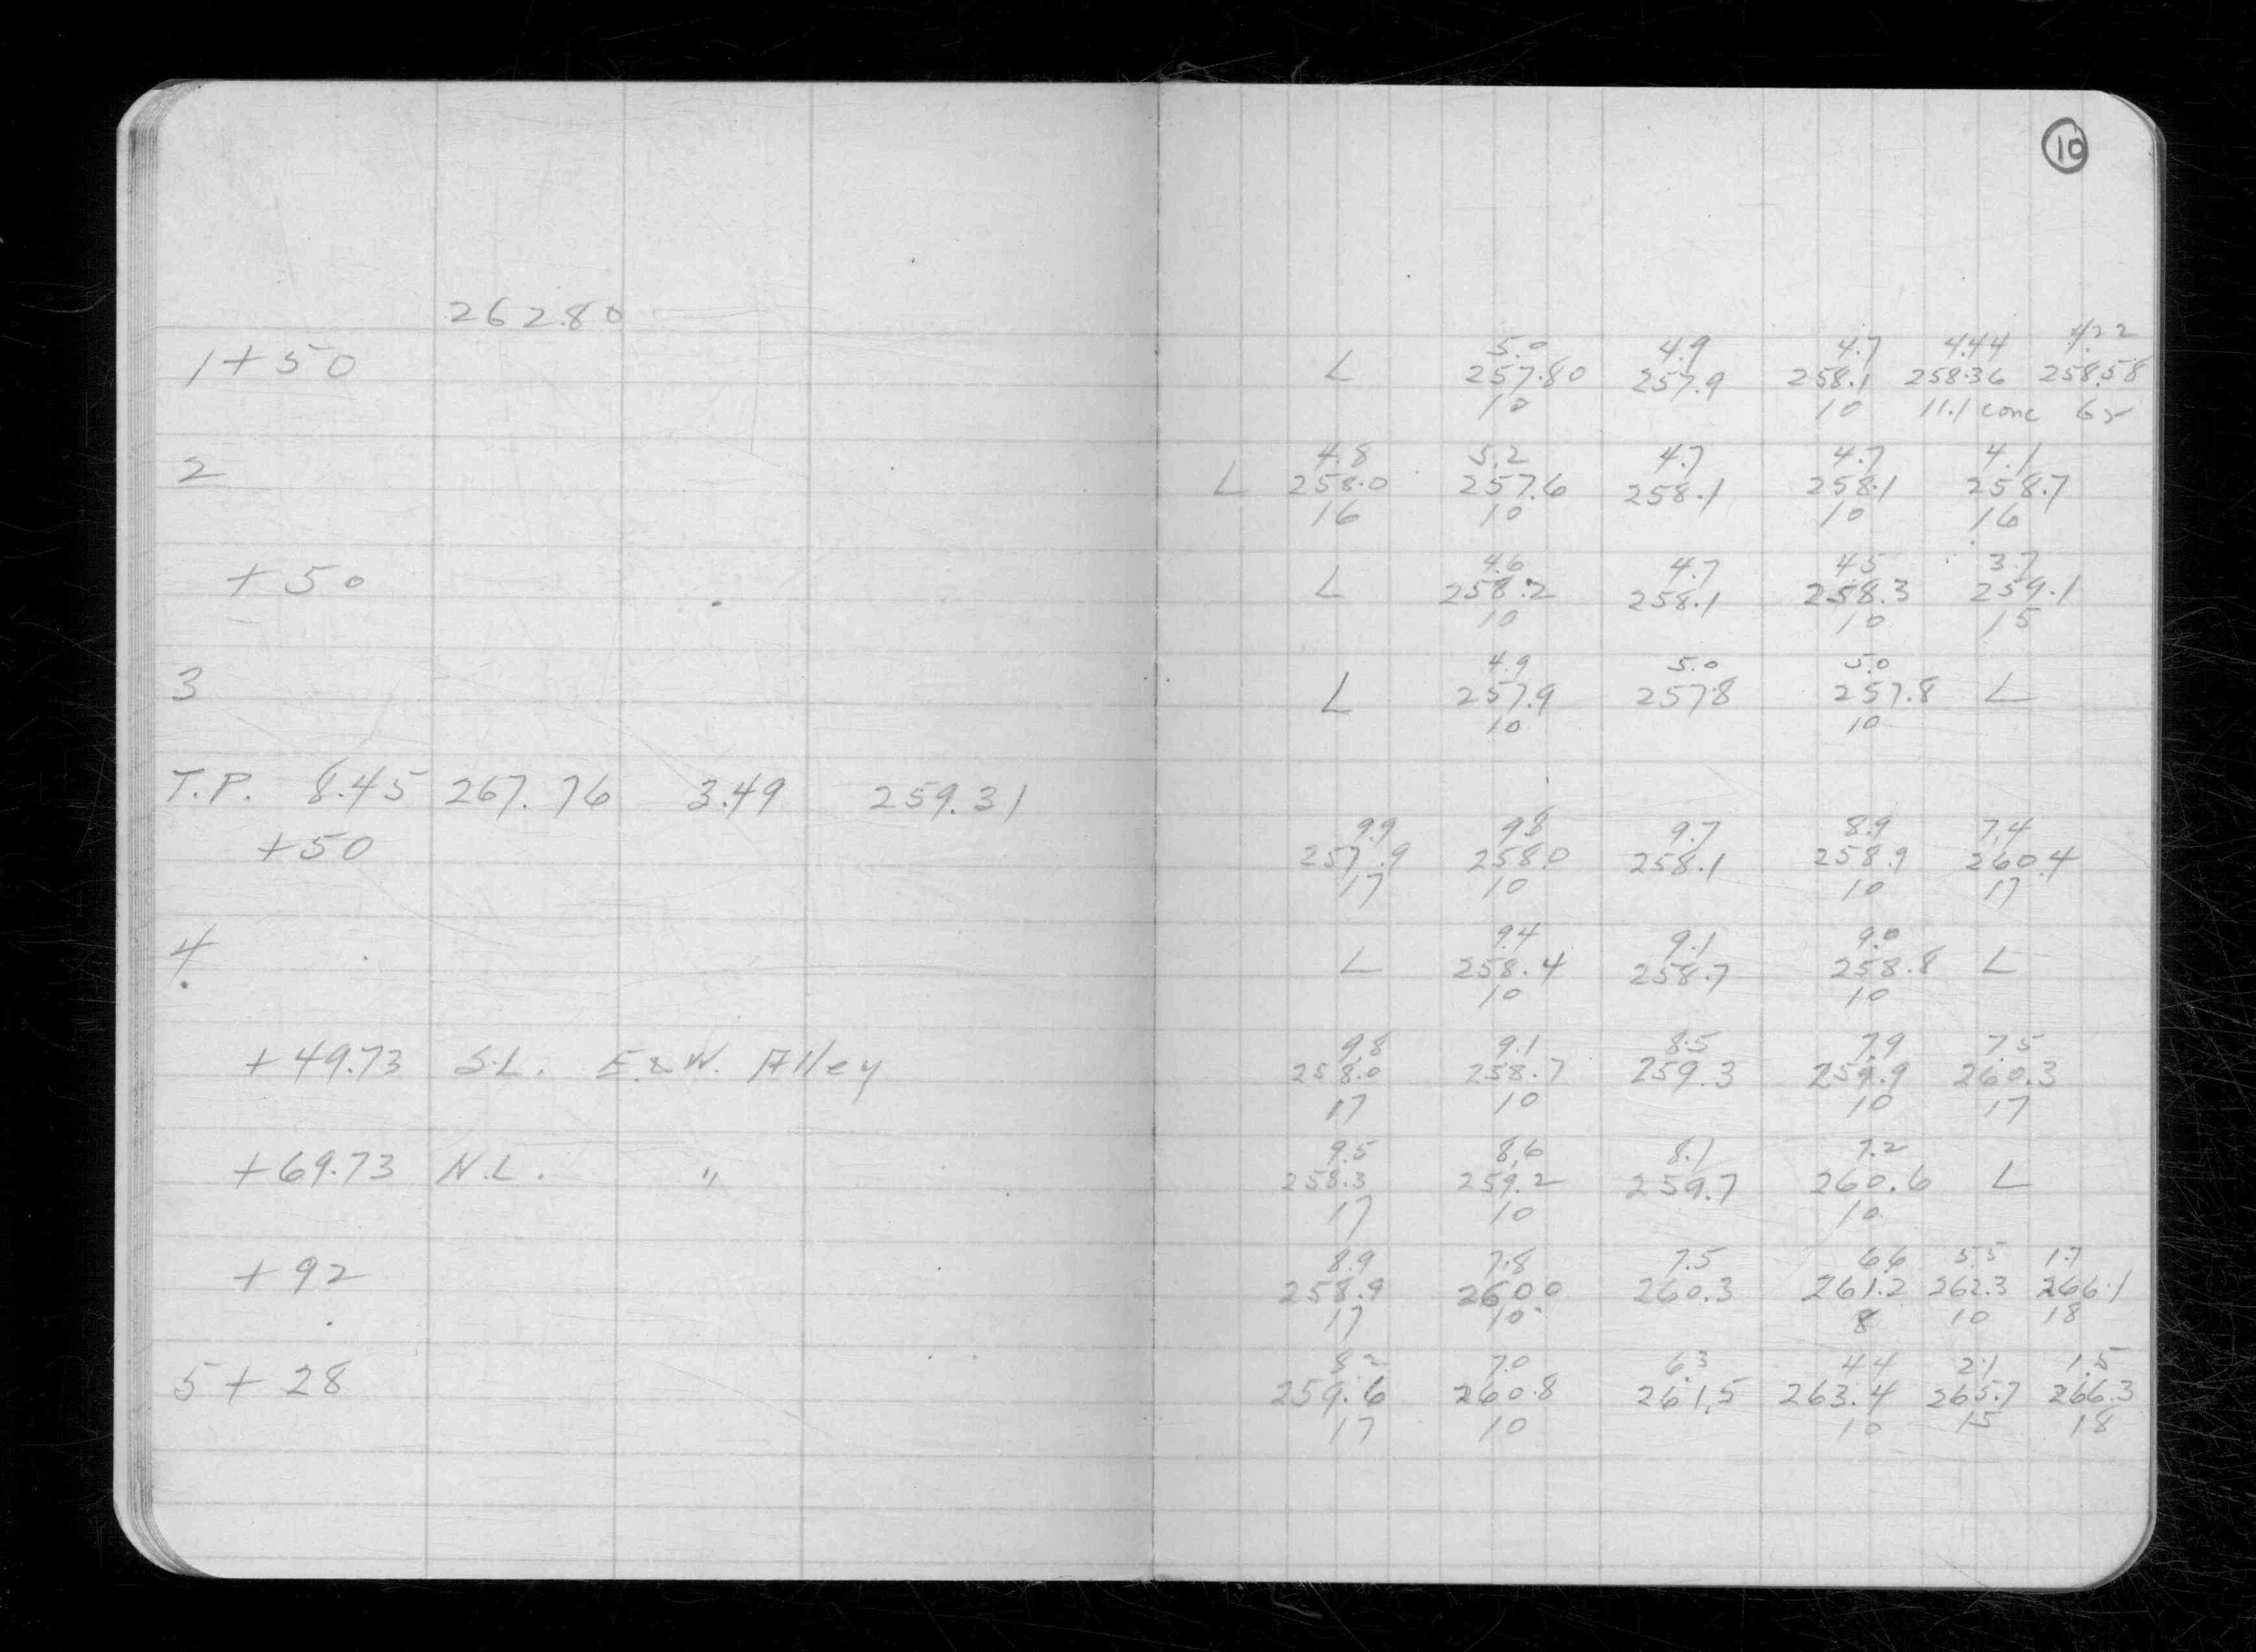 10
262.80
5.0 4.9 4.7 4.44 4.22
1+50 L 257.80 257.9 258.1 258.36 258.58
10 10 11.1 conc
4.8 5.2 4.7 4.7 4.1
2 L 258.0 257.6 258.1 258.1 258.7
16 10 10 16
4.6 4.7 4.5 3.7
+50 L 258.2 258.1 258.3 259.1
10 10 15
4.9 5.0 5.0
3 L 257.9 257.8 257.8 L
10 10
T.P. 8.45 267.76 3.49 259.31
9.9 9.8 9.7 8.9 7.4
+50 257.9 258.0 258.1 258.9 260.4
17 10 10 17
9.4 9.1 9.0
4 L 258.4 258.7 258.8 L
10 10
9.8 9.1 8.5 7.9 7.5
+49.73 S.L. E&W. Alley 258.0 258.7 259.3 259.9 260.3
17 10 10 17
9.5 8.6 8.1 7.2
+69.73 N.L. " 258.3 259.2 259.7 260.6 L
17 10 10
8.9 7.8 7.5 6.6 5.5 1.7
+92 258.9 260.0 260.3 261.2 262.3 266.1
17 10 8 10 18
8.2 7.0 6.3 4.4 2.1 1.5
5+28 259.6 260.8 261.5 263.4 265.7 266.3
17 10 10 15 18